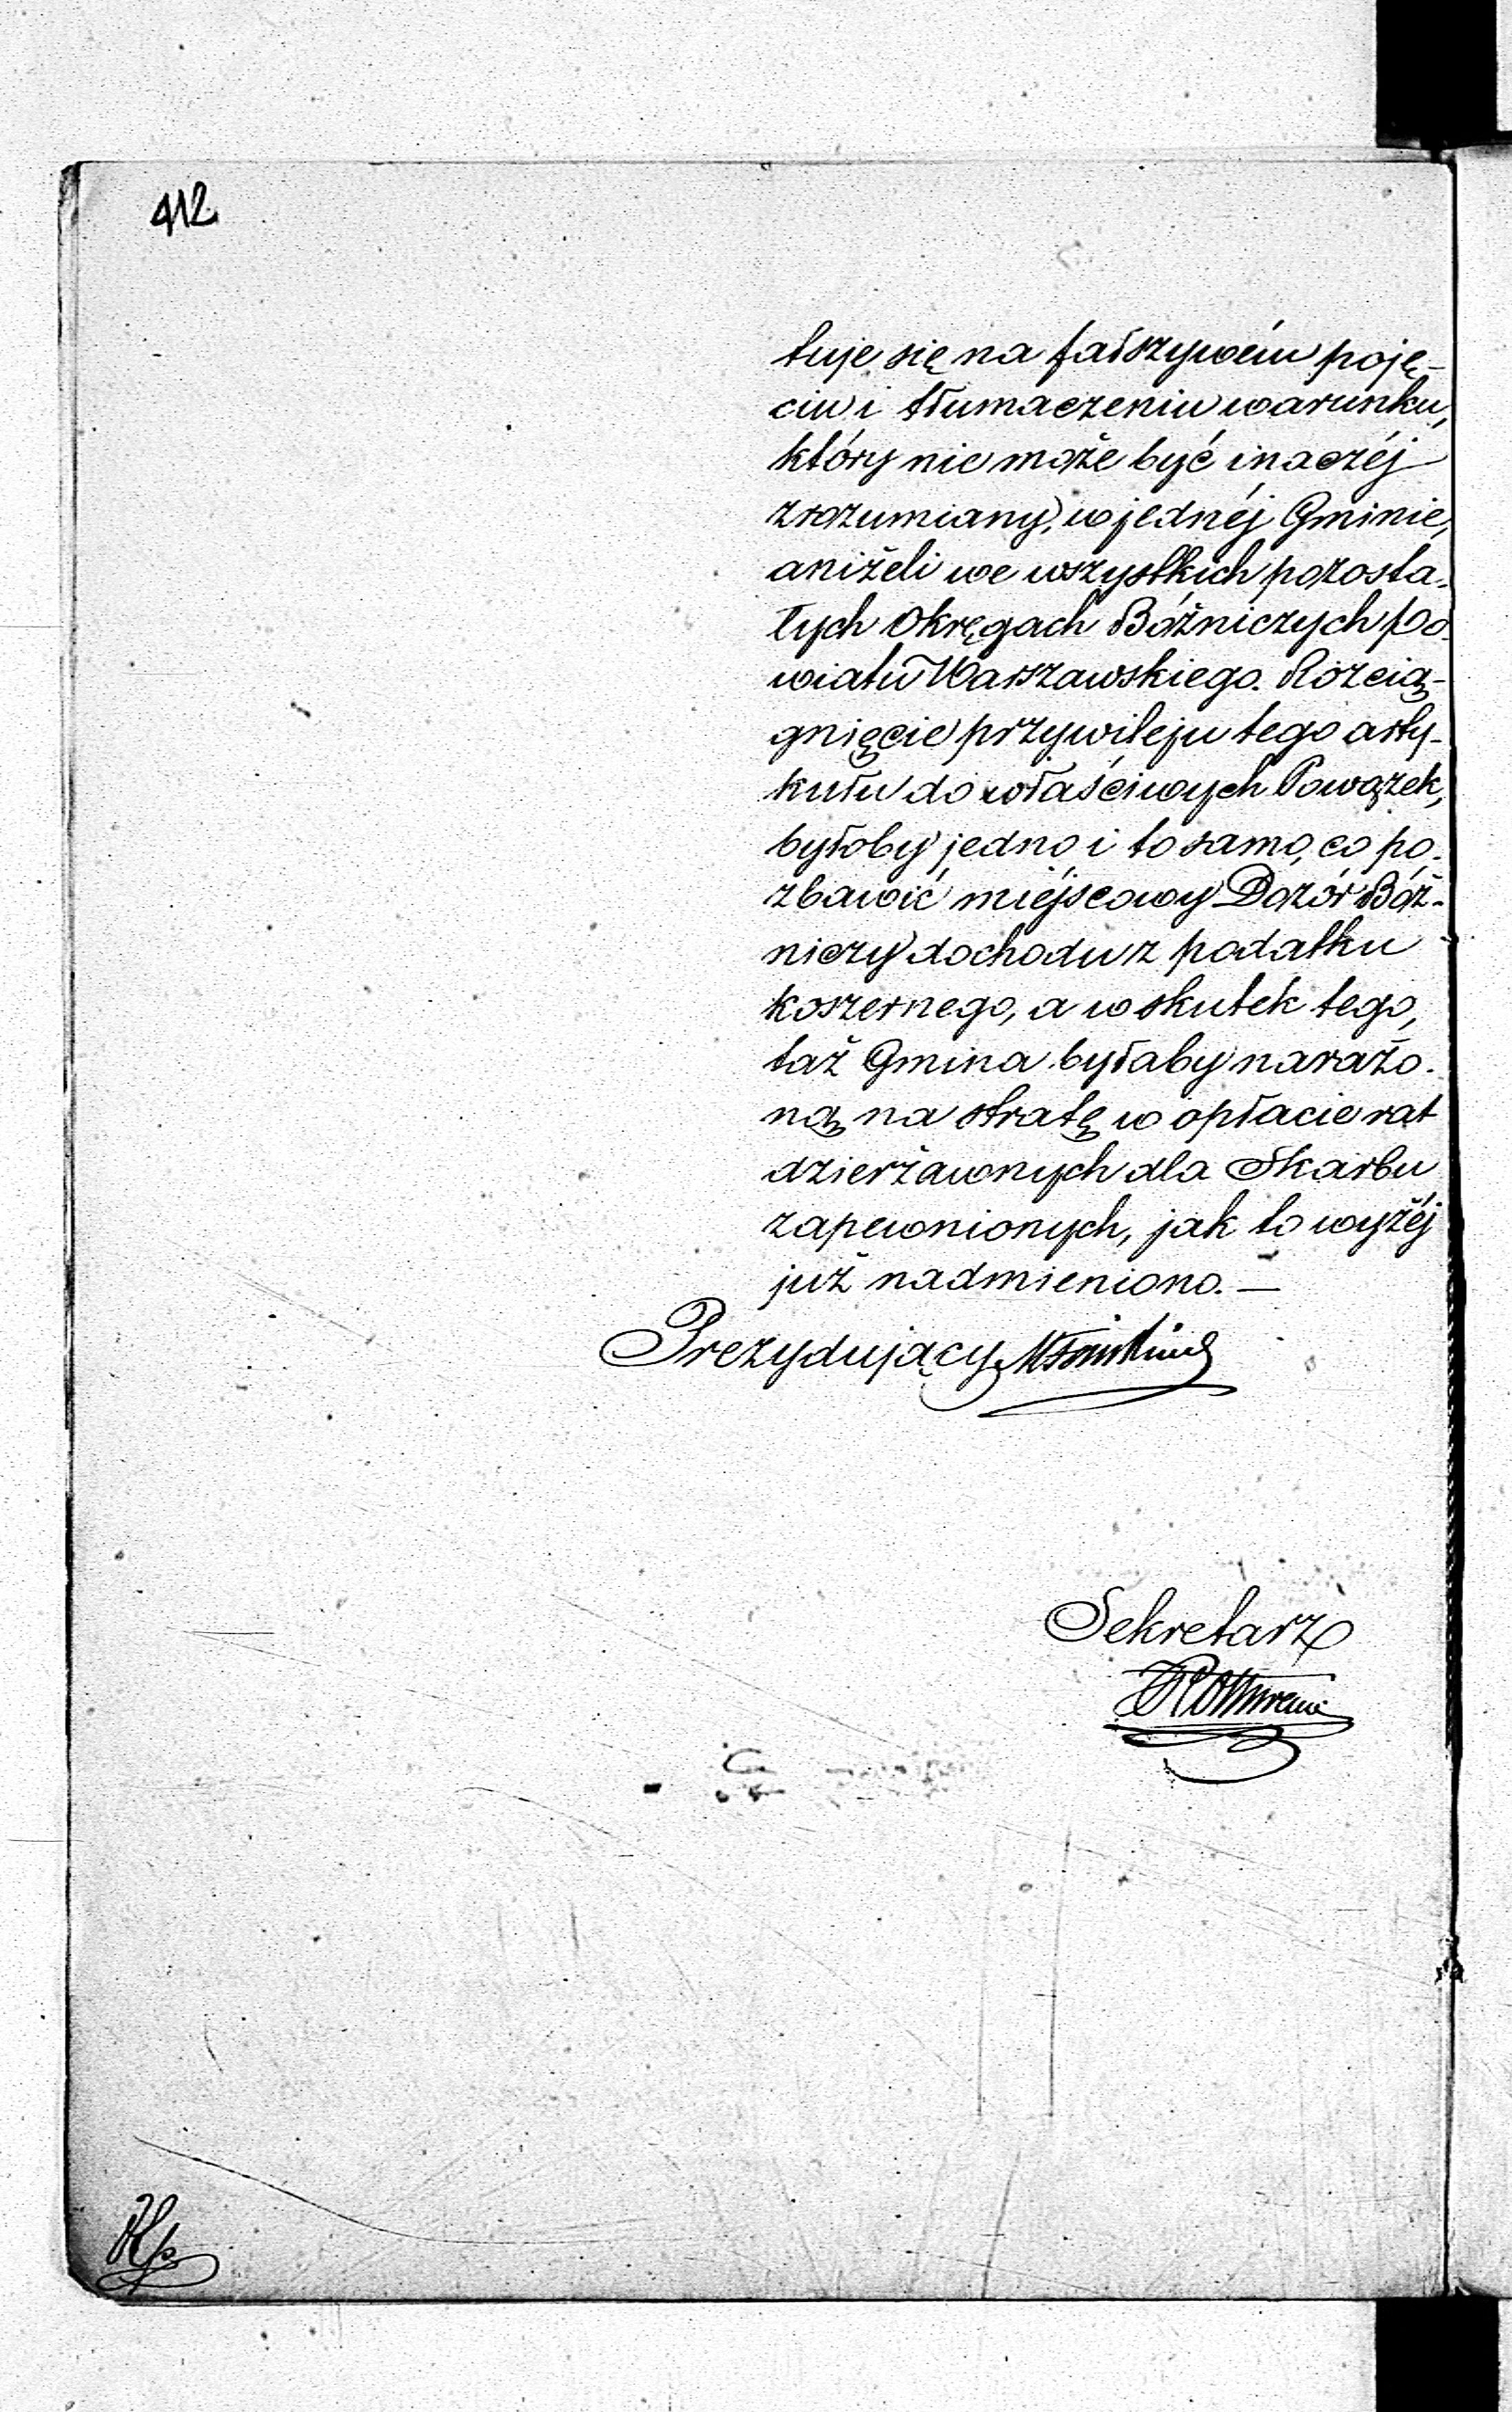 412
tuje się na fałszywém poję-
ciu i tłumaczeniu warunku,
który nie może być inaczéj
zrozumiany, w jednéj Gminie,
aniżeli we wszystkich pozosta-
łych Okręgach Bóżniczych Po-
wiatu Warszawskiego. Rozcią-
gnięcie przywileju tego arty-
kułu do właściwych Powązek,
byłoby jedno i to samo, co po-
zbawić miéjscowy Dozór Bóż-
niczy dochodu z podatku
koszernego, a w skutek tego,
taż Gmina byłaby narażo-
ną na stratę w opłacie rat
dzierżawnych dla Skarbu
zapewnionych, jak to wyżéj
już nadmieniono. —
Prezydujący
Sekretarz